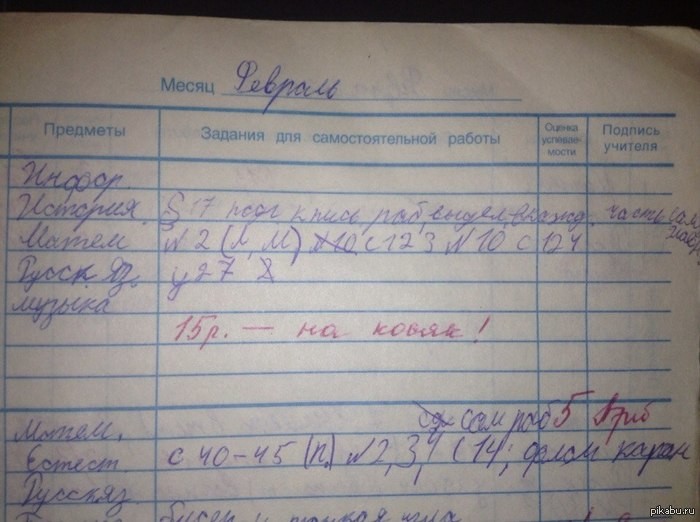 Месяц Февраль
Предметы Задания для самостоятельной работы Оценка успевае- мости Подпись учителя
Инфор.
История. § 17 подг к пись раб, в часть сам
Матем N 2 (Л, М) N10 с 123 N 10 с 124
Русск яз. у 27 8
музыка
15р. — на косяк!
сам раб 5
Матем.
Естест с 40-45 (п.) N2,3,4 с 14; флом каран
Русск яз
pikabu.ru